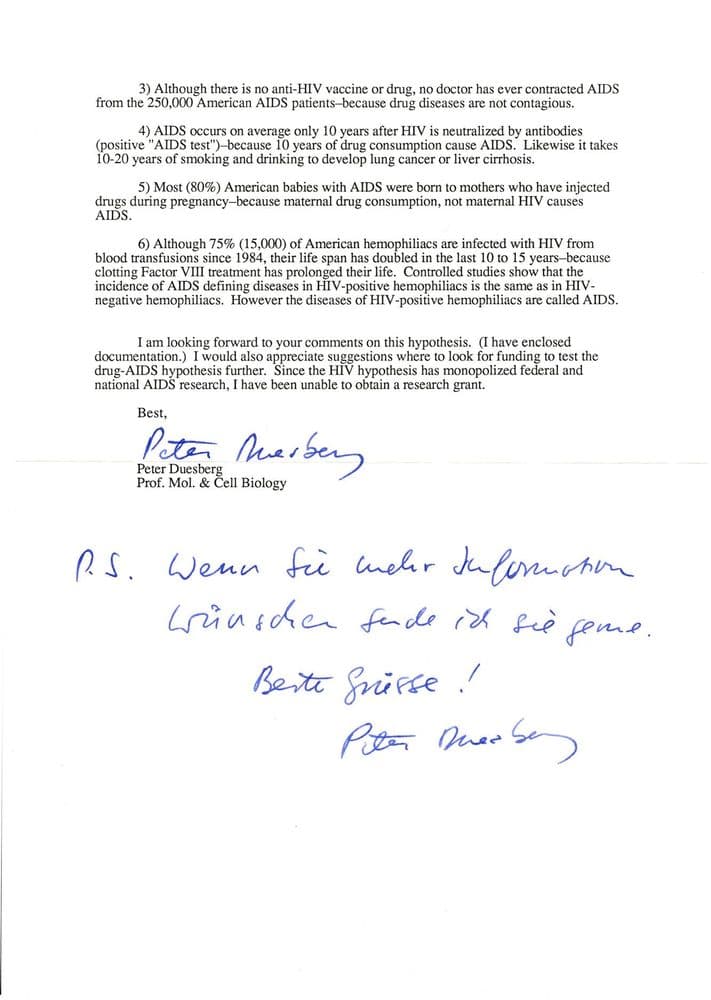 3) Although there is no anti-HIV vaccine or drug, no doctor has ever contracted AIDS
from the 250,000 American AIDS patients–because drug diseases are not contagious.
4) AIDS occurs on average only 10 years after HIV is neutralized by antibodies
(positive "AIDS test")–because 10 years of drug consumption cause AIDS. Likewise it takes
10-20 years of smoking and drinking to develop lung cancer or liver cirrhosis.
5) Most (80%) American babies with AIDS were born to mothers who have injected
drugs during pregnancy–because maternal drug consumption, not maternal HIV causes
AIDS.
6) Although 75% (15,000) of American hemophiliacs are infected with HIV from
blood transfusions since 1984, their life span has doubled in the last 10 to 15 years–because
clotting Factor VIII treatment has prolonged their life. Controlled studies show that the
incidence of AIDS defining diseases in HIV-positive hemophiliacs is the same as in HIV-
negative hemophiliacs. However the diseases of HIV-positive hemophiliacs are called AIDS.
I am looking forward to your comments on this hypothesis. (I have enclosed
documentation.) I would also appreciate suggestions where to look for funding to test the
drug-AIDS hypothesis further. Since the HIV hypothesis has monopolized federal and
national AIDS research, I have been unable to obtain a research grant.
Best,
Peter Duesberg
Peter Duesberg
Prof. Mol. & Cell Biology
P.S. Wenn Sie mehr Information
wünschen sende ich sie gerne.
Beste Grüsse !
Peter Duesberg